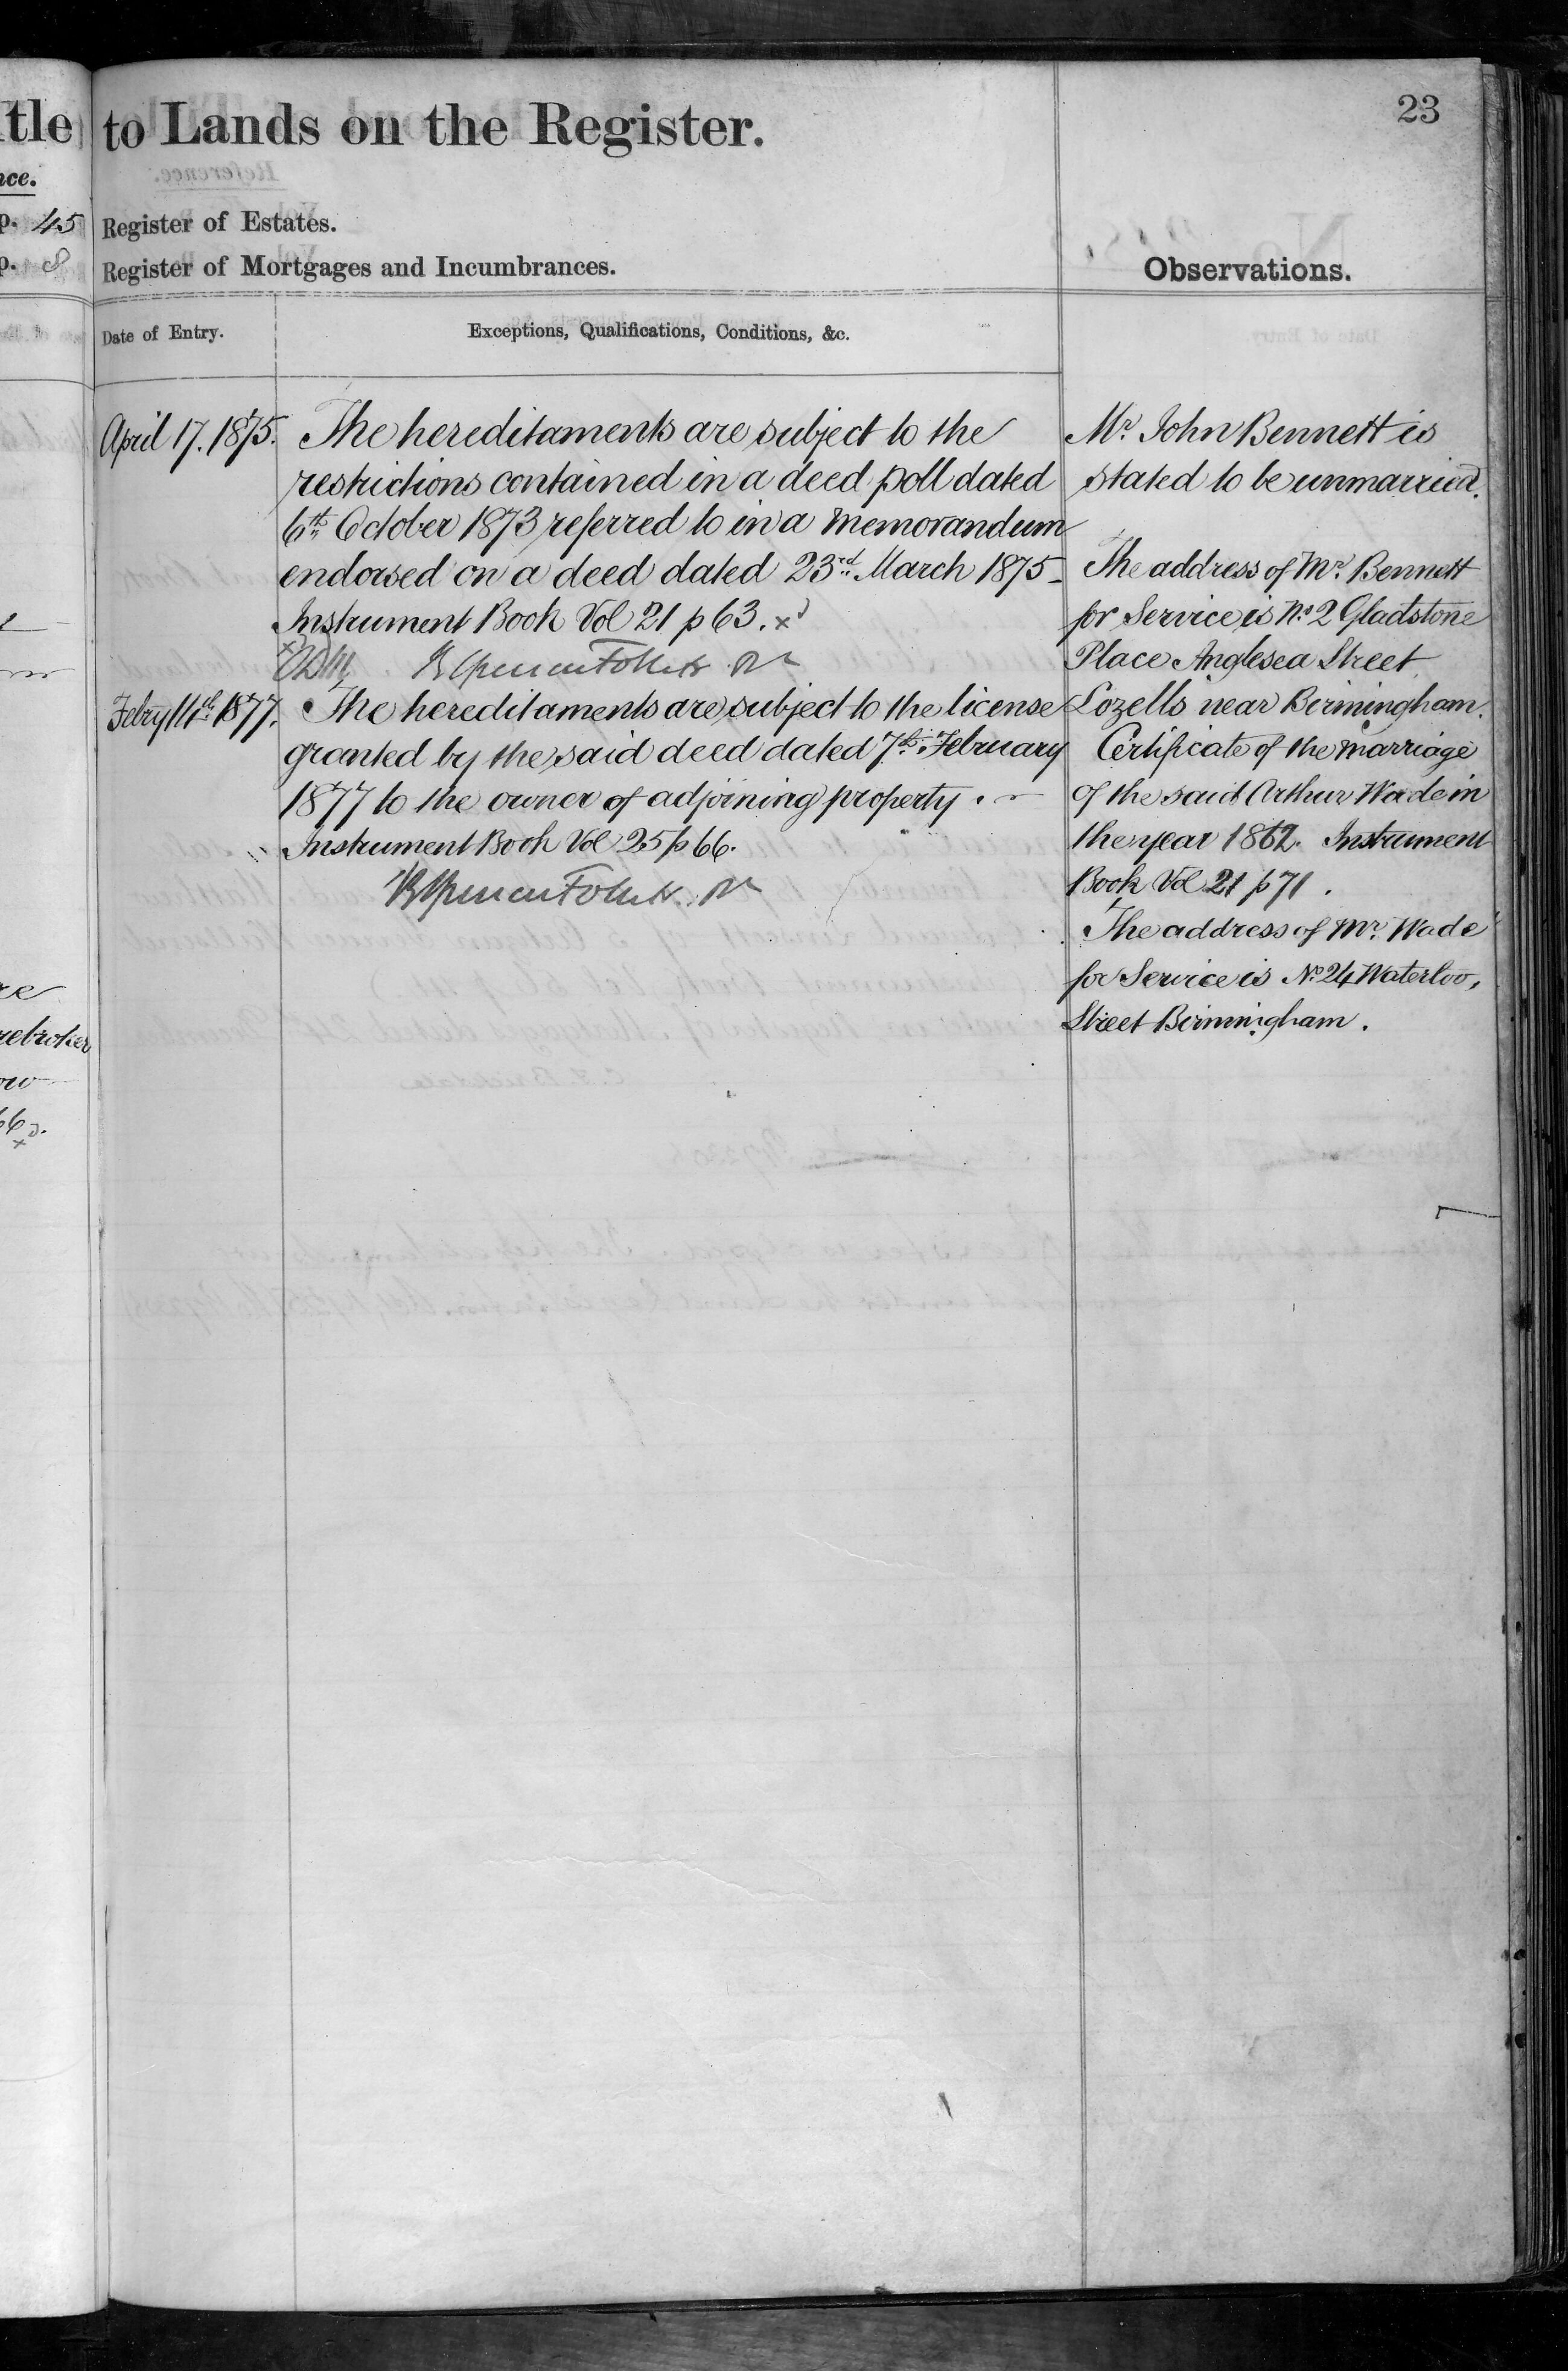 tle
to Lands on the Register.
23
nce.
p. 45
Register of Estates.
p. 8
Register of Mortgages and Incumbrances.
Observations.
Date of Entry.
Exceptions, Qualifications, Conditions, &c.
April 17. 1875.
The hereditaments are subject to the
restrictions contained in a deed poll dated
6th October 1873 referred to in a memorandum
endorsed on a deed dated 23rd March 1875 -
Instrument Book Vol 21 p 63. x
Febry 11th 1877.
The hereditaments are subject to the license
granted by the said deed dated 7th February
1877 to the owner of adjoining property.
Instrument Book Vol 25 p 66.
Mr. John Bennett is
stated to be unmarried.
The address of Mr. Bennett
for Service is No. 2 Gladstone
Place Anglesea Street
Lozells near Birmingham.
Certificate of the marriage
of the said Arthur Wade in
the year 1862. Instrument
Book Vol 21 p 71.
The address of Mr. Wade
for Service is No. 24 Waterloo,
Street Birmingham.